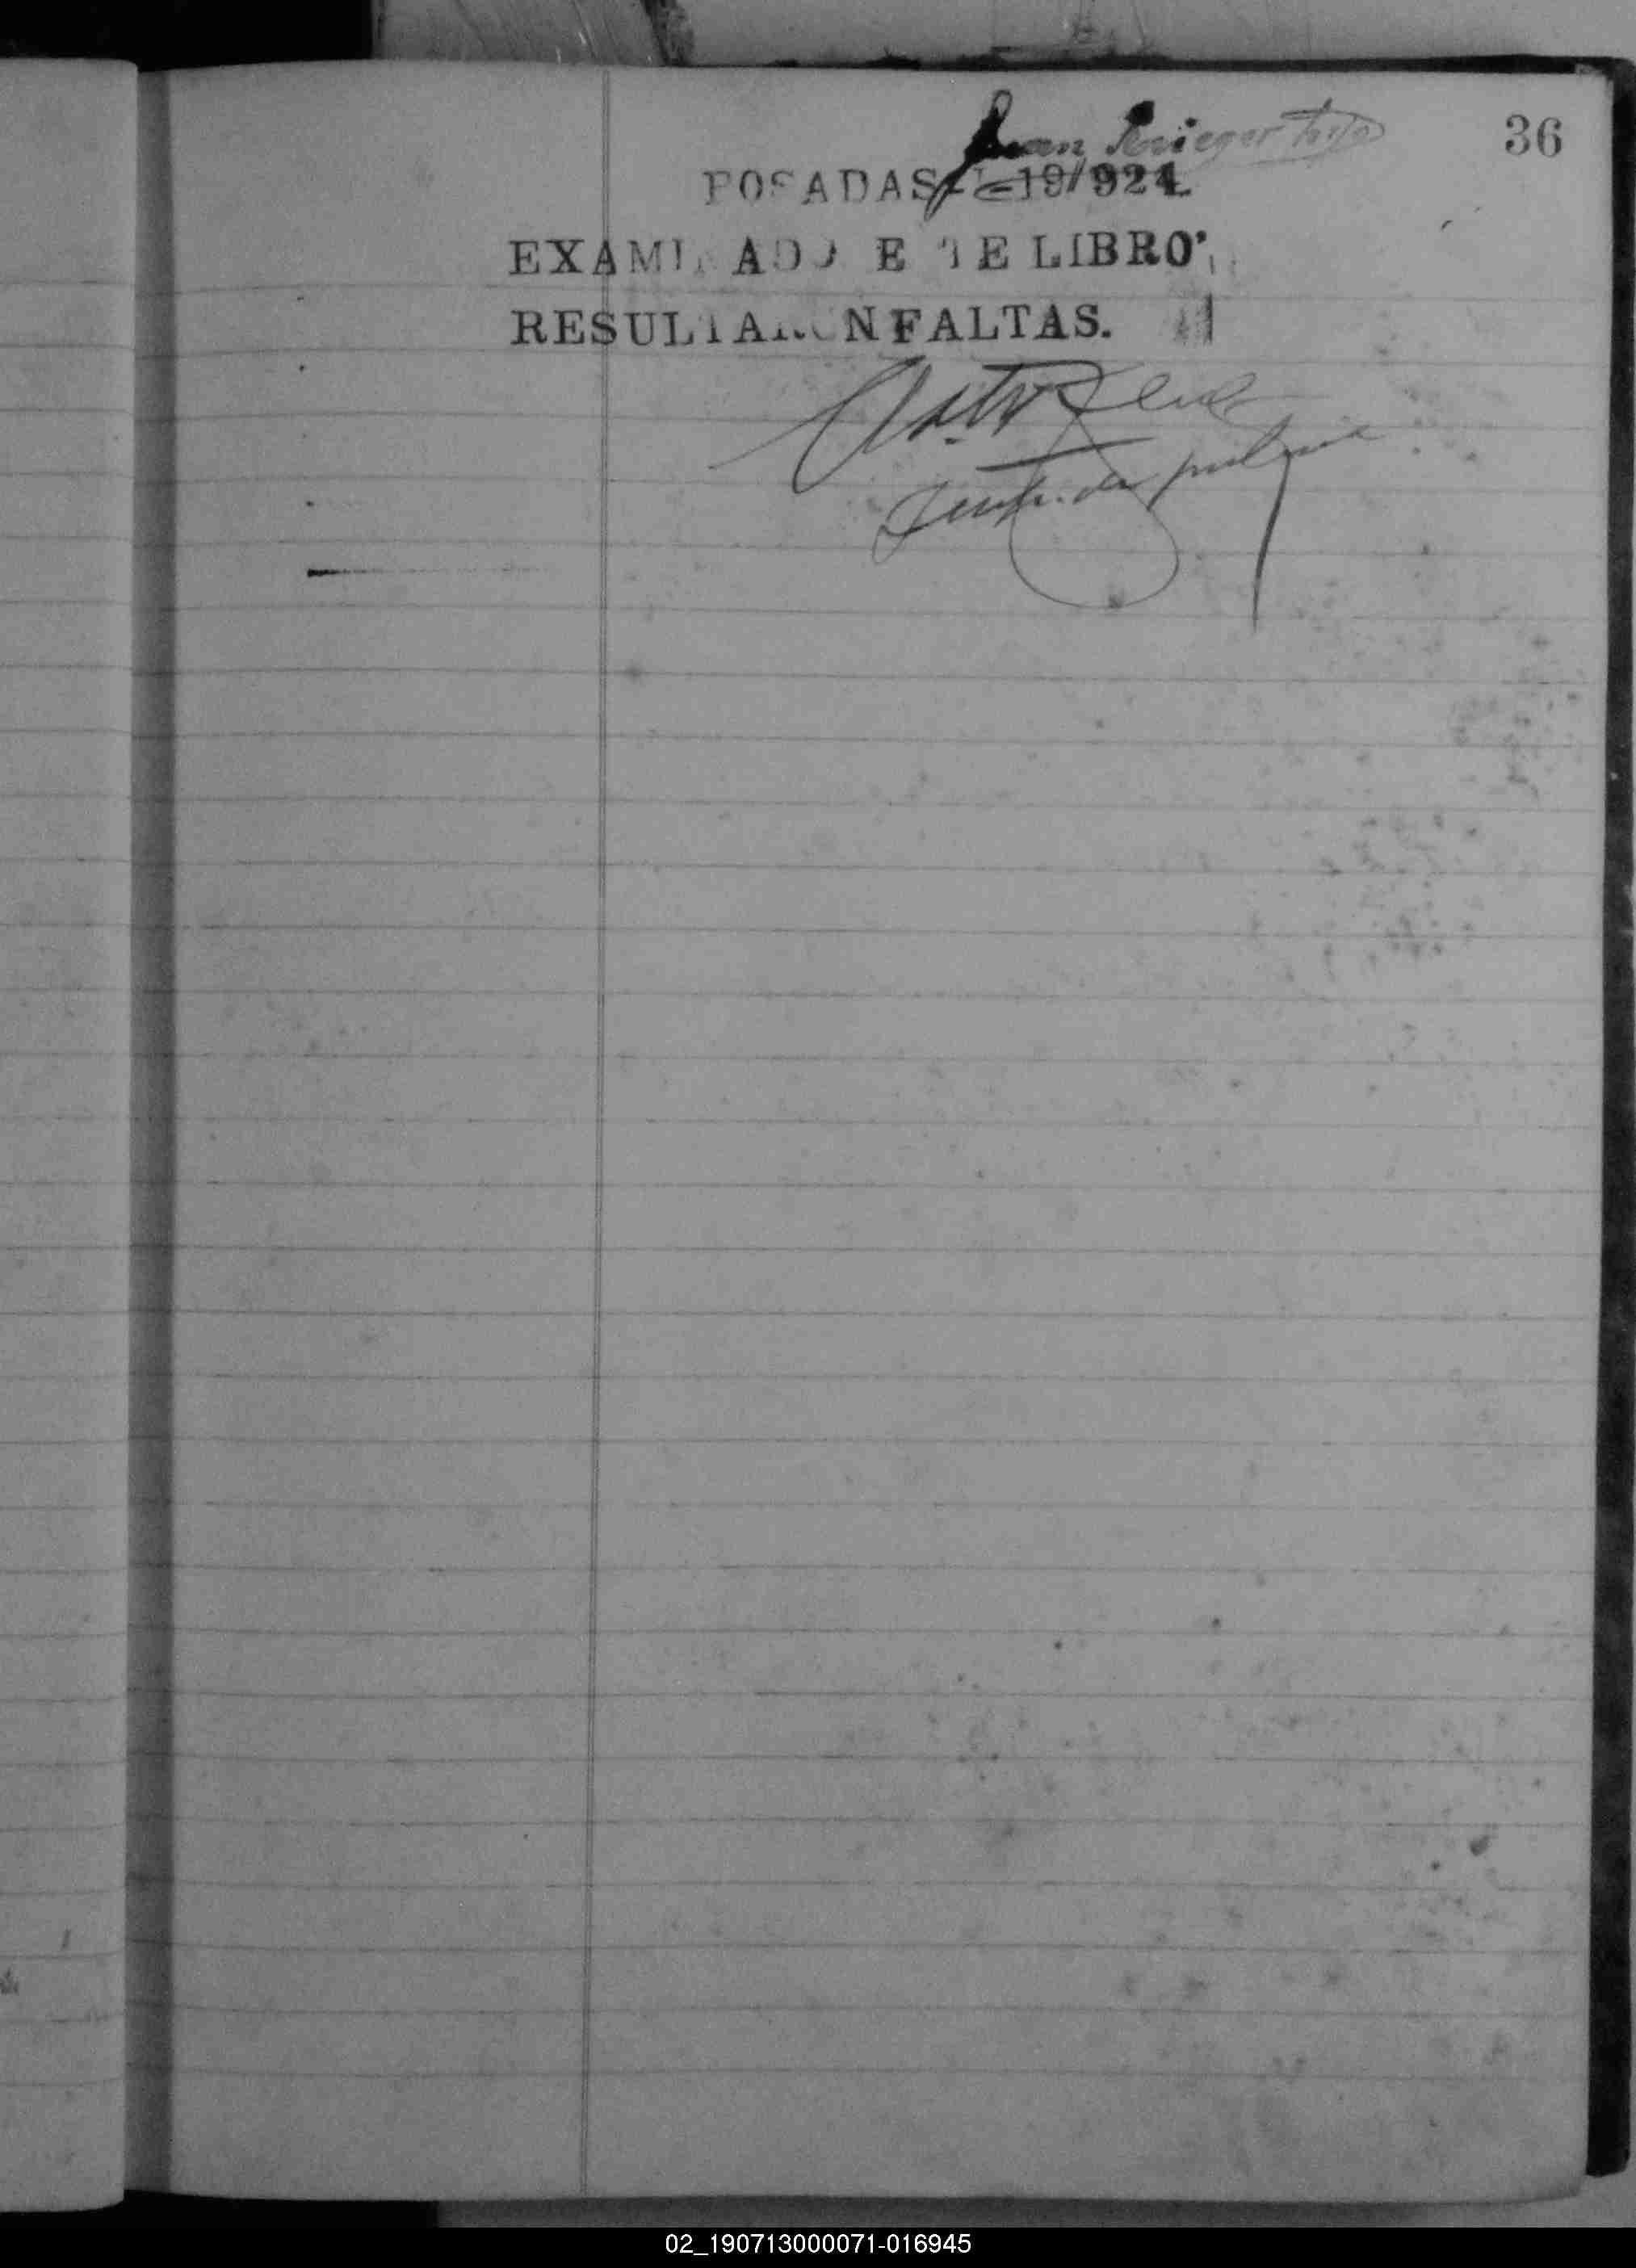 36
Juan Krieger hijo
POSADAS 19/924.
EXAMINADO ESTE LIBRO,
RESULTARON FALTAS.
02_190713000071-016945